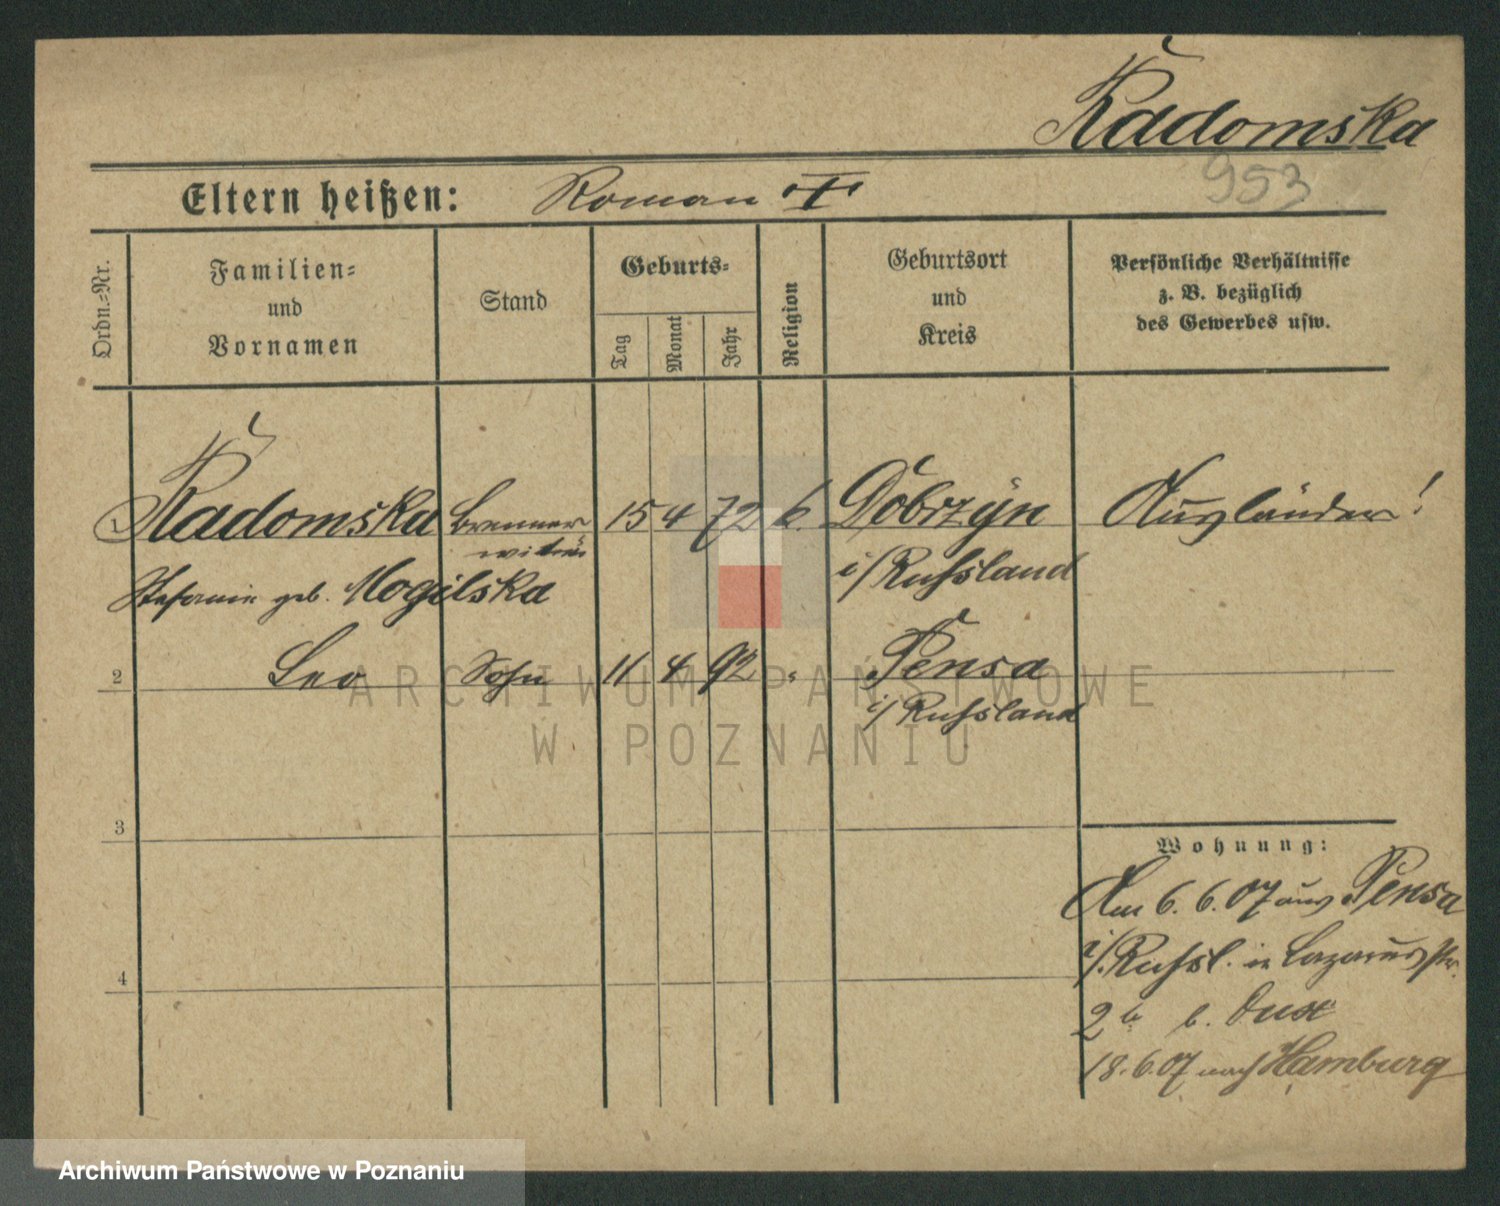 Radomska
953
Eltern heißen: Roman †
Ordn.-Nr.
Familien-
und
Vornamen
Stand
Geburts-
Tag
Monat
Jahr
Religion
Geburtsort
und
Kreis
Persönliche Verhältnisse
z. B. bezüglich
des Gewerbes usw.
1 Radomska Brenner 15 4 72 k. Dobrzyn Ausländer!
witwe i/Russland
Stefanie geb. Mogilska
2 Leo Sohn 11 4 92 " Pensa
i/Russland
3
Wohnung:
Am 6.6.07 aus Pensa
i/.Russl. in Lazarusstr.
4
2b b.
18.6.07 nach Hamburg
ARCHIWUM PAŃSTWOWE
W POZNANIU
Archiwum Państwowe w Poznaniu